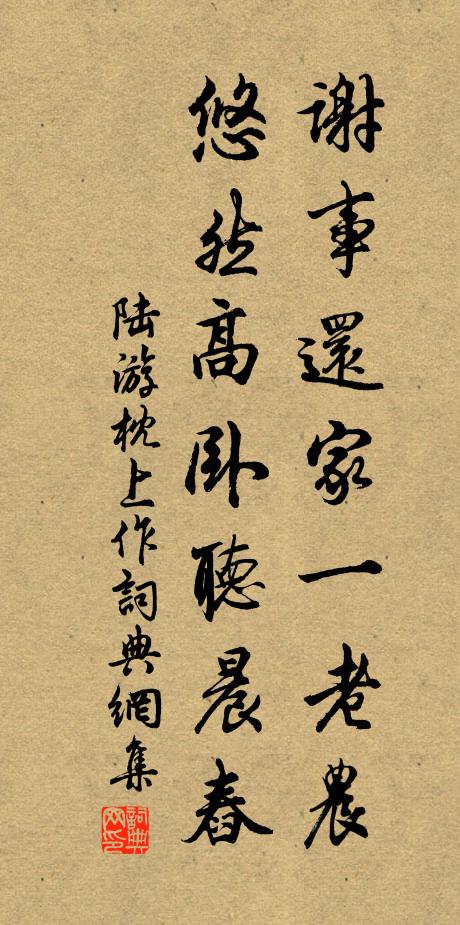 謝事還家一老農
悠然高卧聽晨舂
陸游枕上作詞典網集
詞典网印